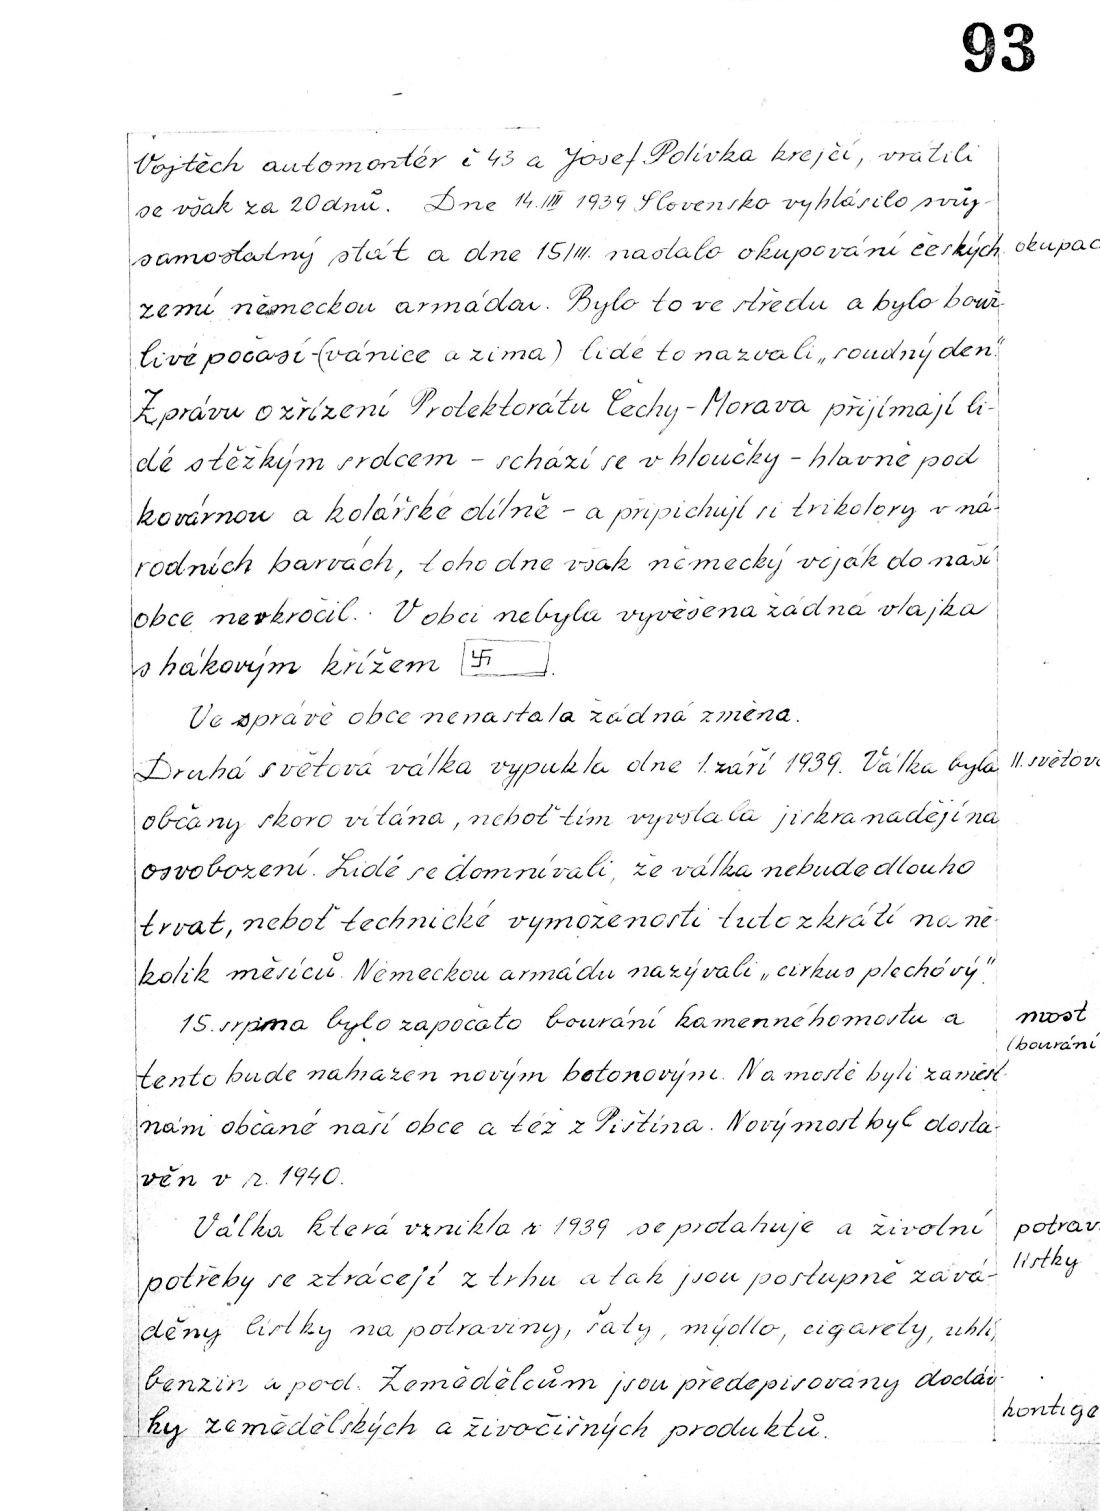 93
Vojtěch automontér č 43 a Josef Polívka krejčí, vrátili
se však za 20 dnů. Dne 14.III 1939 Slovensko vyhlásilo svůj
samostatný stát a dne 15/III. nastalo okupování českých okupac
zemí německou armádou. Bylo to ve středu a bylo bouř-
livé počasí (vánice a zima) lidé to nazvali „soudný den".
Zprávu o zřízení Protektorátu Čechy-Morava přijímají li-
dé s těžkým srdcem - schází se v hloučky - hlavně pod
kovárnou a kolářské dílně - a připichují si trikolory v ná-
rodních barvách, toho dne však německý voják do naší
obce nevkročil. V obci nebyla vyvěšena žádná vlajka
s hákovým křížem 卐.
Ve správě obce nenastala žádná změna.
Druhá světová válka vypukla dne 1. září 1939. Válka byla II. světova
občany skoro vítána, neboť tím vyvstala jiskra nadějí na
osvobození. Lidé se domnívali, že válka nebude dlouho
trvat, neboť technické vymoženosti tuto zkrátí na ně-
kolik měsíců. Německou armádu nazývali „cirkus plechový"
15. srpna bylo započato bourání kamenného mostu a most
(bourání
tento bude nahrazen novým betonovým. Na mostě byli zaměst-
náni občané naší obce a též z Pištína. Nový most byl dosta-
věn v r. 1940.
Válka která vznikla r 1939 se protahuje a životní potrav.
potřeby se ztrácejí z trhu a tak jsou postupně zavá- lístky
děny lístky na potraviny, šaty, mýdlo, cigarety, uhlí,
benzin a pod. Zemědělcům jsou předepisovány dodáv-
ky zemědělských a živočišných produktů. kontige